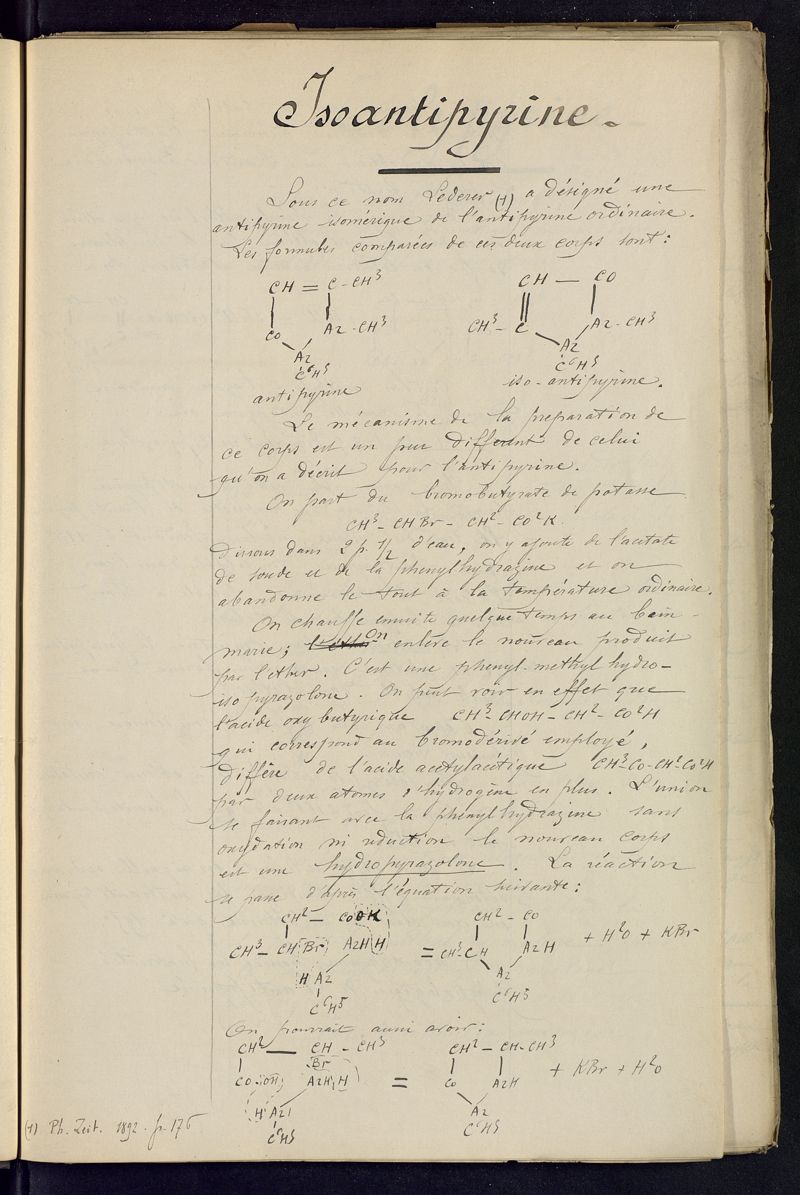 Isoantipyrine.
Sous ce nom Lederer (1) a désigné une
antipyrine isomérique de l'antipyrine ordinaire.
Les formules comparées de ces deux corps sont:
CH = C - CH³
CO Az - CH³
Az
C⁶H⁵
antipyrine
CH — CO
CH³ - C Az - CH³
Az
C⁶H⁵
iso-antipyrine.
Le mécanisme de la préparation de
ce corps est un peu différent de celui
qu'on a décrit pour l'antipyrine.
On part du bromobutyrate de potasse
CH³ - CHBr - CH² - CO²K.
dissous dans 2 p. 1/2 d'eau, on y ajoute de l'acétate
de soude et de la phenylhydrazine et on
abandonne le tout à la température ordinaire.
On chauffe ensuite quelque temps au bain-
marie; l'éther on enlève le nouveau produit
par l'ether. C'est une phenyl-methyl hydro-
iso pyrazolone. On peut voir en effet que
l'acide oxybutyrique CH³ - CHOH - CH² - CO²H
qui correspond au bromodérivé employé,
diffère de l'acide acétylacétique CH³-CO-CH²-CO²H
par deux atomes d'hydrogène en plus. L'union
se faisant avec la phénylhydrazine sans
oxydation ni réduction le nouveau corps
est une hydropyrazolone. La réaction
se passe d'après l'équation suivante:
CH² — COOK
CH³ - CH Br AzH H
H Az
C⁶H⁵
=
CH² - CO
CH³-CH AzH
Az
C⁶H⁵
+ H²O + KBr
On pourrait aussi avoir:
CH² — CH - CH³
Br
CO OH AzH H
H Az
C⁶H⁵
=
CH² - CH-CH³
CO AzH
Az
C⁶H⁵
+ KBr + H²O
(1) Ph. Zeit. 1892. p. 176